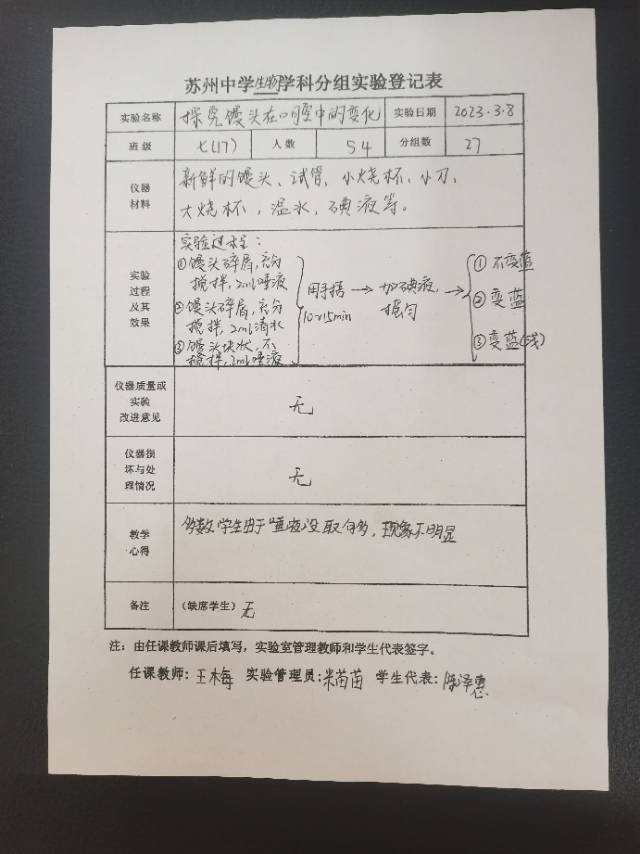 苏州中学生物学科分组实验登记表
实验名称 探究馒头在口腔中的变化 实验日期 2023.3.8
班级 七(17) 人数 54 分组数 27
仪器材料 新鲜的馒头、试管、小烧杯、小刀、
大烧杯，温水，碘液等。
实验过程及其效果 实验过程：
①馒头碎屑，充分
搅拌，2ml唾液
②馒头碎屑，充分
搅拌，2ml清水
③馒头块状，不
搅拌，2ml唾液
用手捂
10~15min
→ 加碘液
摇匀
→ ① 不变蓝
② 变蓝
③ 变蓝(浅)
仪器质量或实验改进意见 无
仪器损坏与处理情况 无
教学心得 多数学生由于唾液没取够多，现象不明显
备注 (缺席学生) 无
注：由任课教师课后填写，实验室管理教师和学生代表签字。
任课教师：王木梅 实验管理员：米苗苗 学生代表：陈泽惠